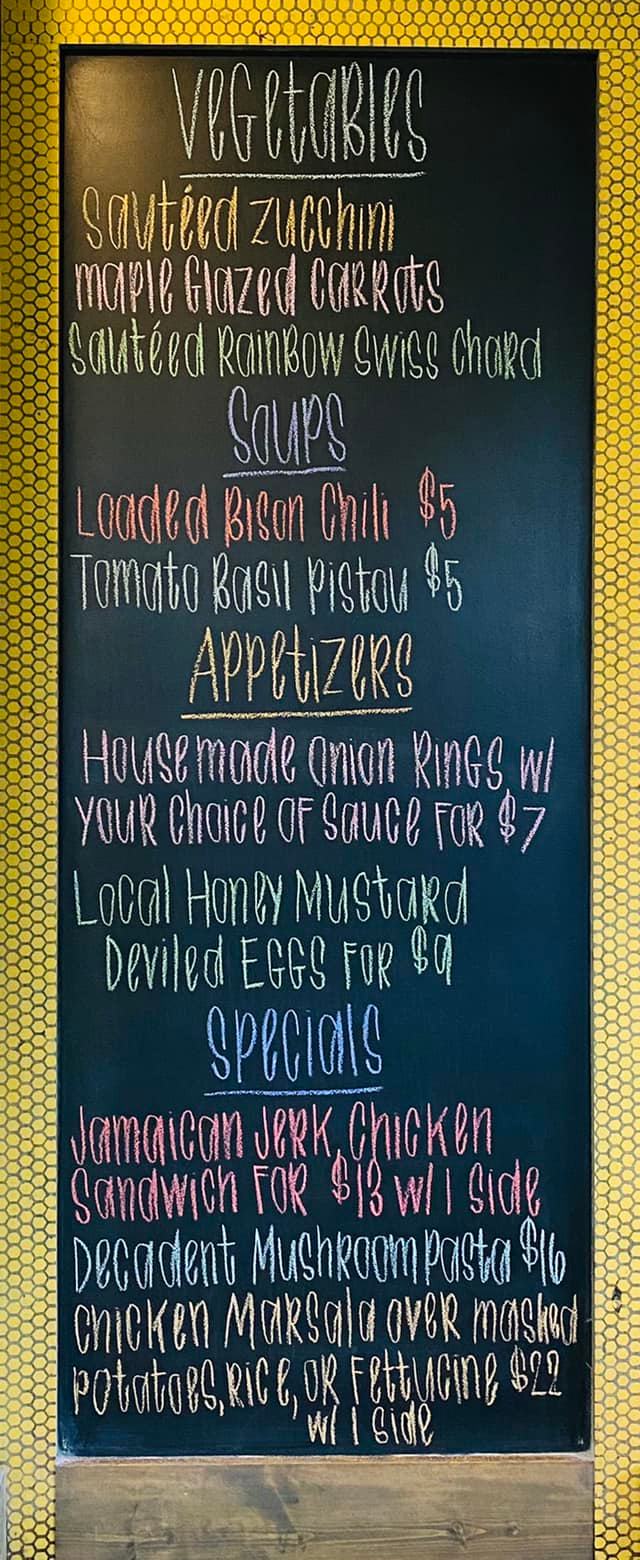 Vegetables
Sautéed Zucchini
Maple Glazed Carrots
Sautéed Rainbow Swiss Chard
Soups
Loaded Bison Chili $5
Tomato Basil Pistou $5
Appetizers
Housemade Onion Rings w/
your choice of sauce for $7
Local Honey Mustard
Deviled Eggs for $9
Specials
Jamaican Jerk Chicken
Sandwich for $13 w/ 1 side
Decadent Mushroom Pasta $16
Chicken Marsala over mashed
potatoes, rice, or fettucine $22
w/ 1 side